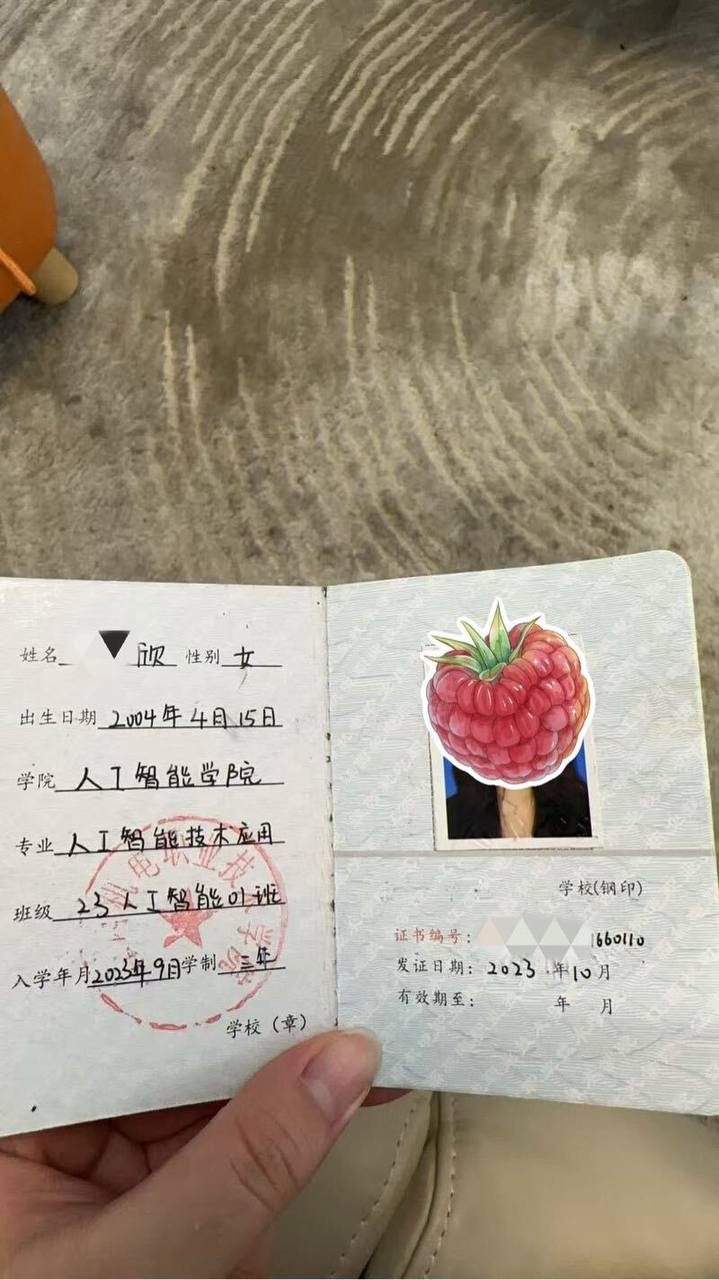 姓名 欣 性别 女
出生日期 2004年4月15日
学院 人工智能学院
专业 人工智能技术应用
班级 23人工智能01班
入学年月2023年9月学制 三年
学校（章）
机电职业技 学院
学校(钢印)
证书编号: 1660110
发证日期: 2023 年10月
有效期至: 年 月